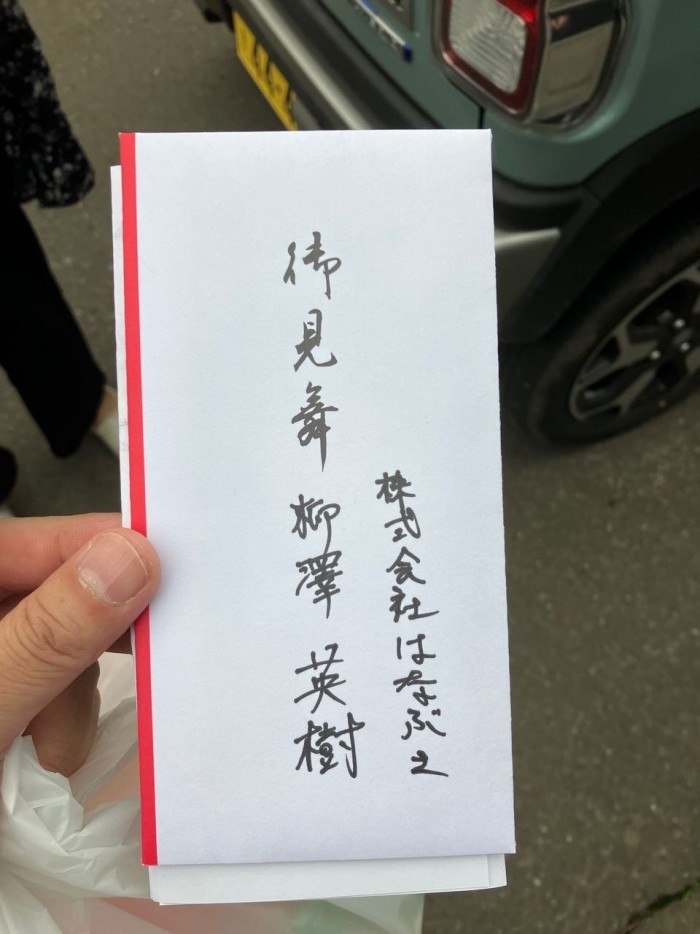 株式会社はなぶさ
御見舞 柳澤 英樹